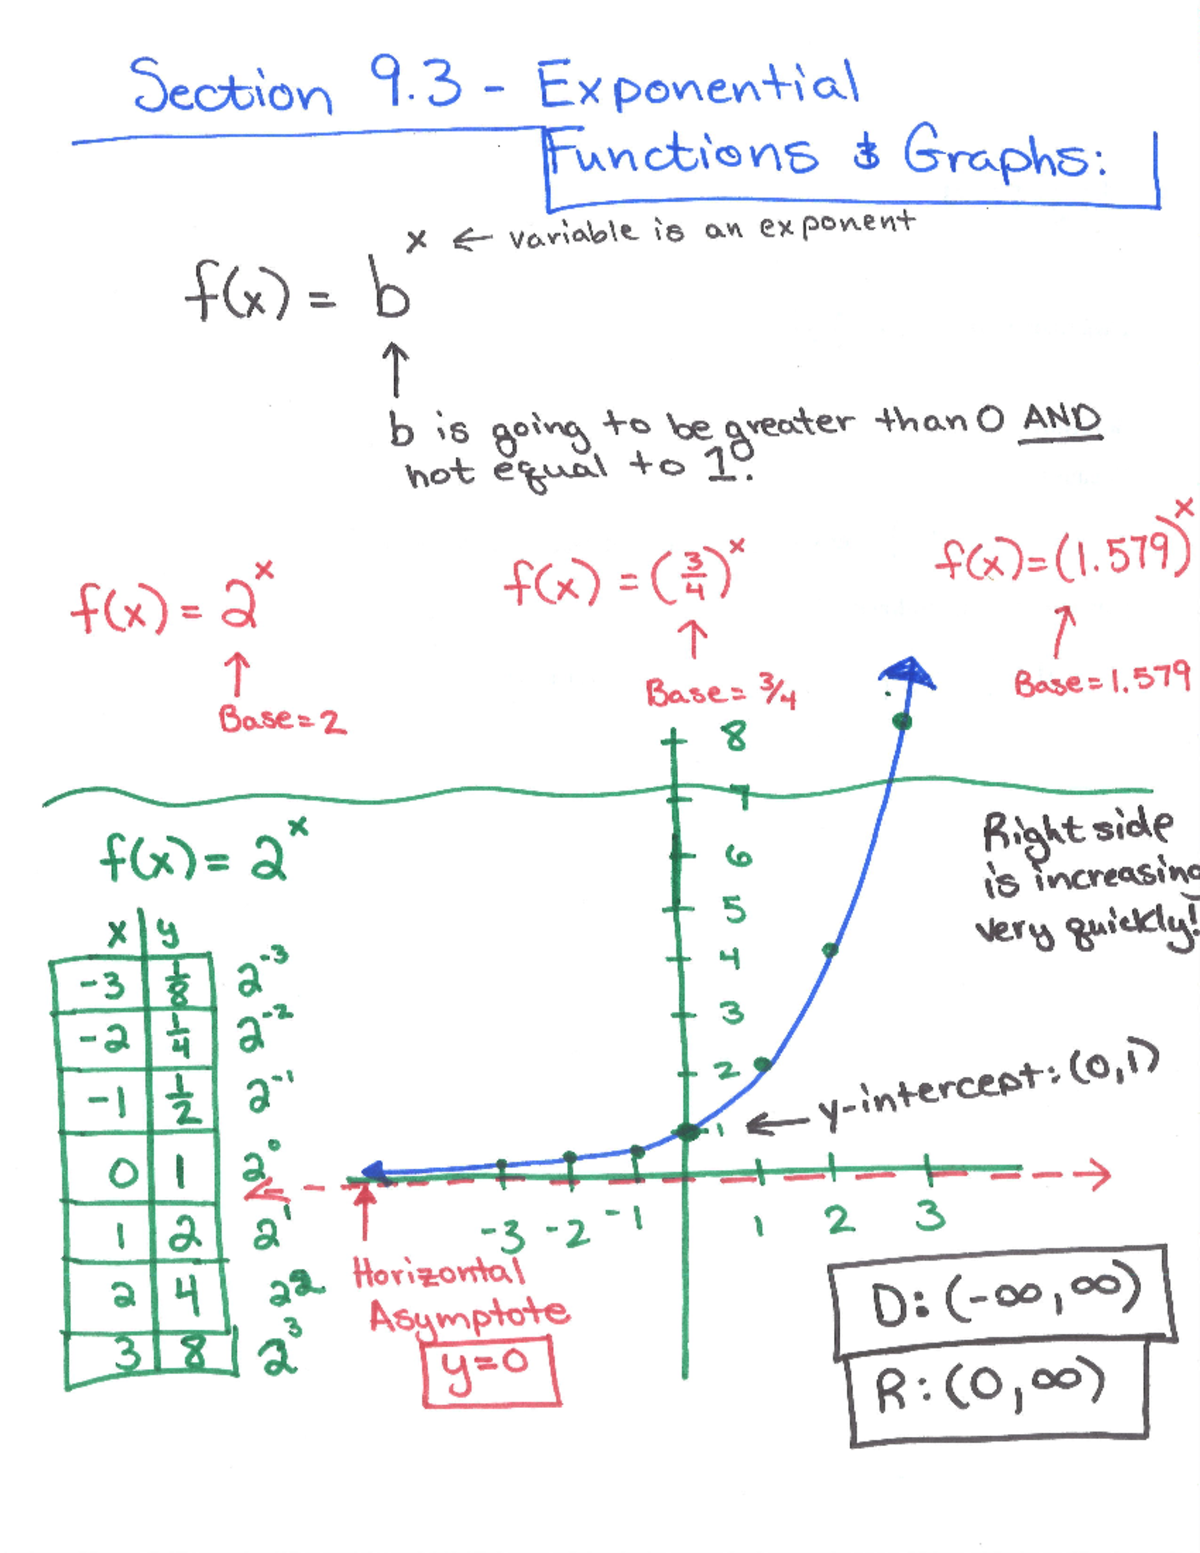 Section 9.3 - Exponential
Functions & Graphs:
x ← variable is an exponent
f(x) = b
↑
b is going to be greater than 0 AND
not equal to 1.
f(x) = 2^x
↑
Base = 2
f(x) = (3/4)^x
↑
Base = 3/4
f(x) = (1.579)^x
↑
Base = 1.579
f(x) = 2^x
x | y
-3 | 1/8 2^-3
-2 | 1/4 2^-2
-1 | 1/2 2^-1
0 | 1 2^0
1 | 2 2^1
2 | 4 2^2
3 | 8 2^3
8
7
6
5
4
3
2
1
-3 -2 -1 1 2 3
Right side
is increasing
very quickly!
← y-intercept: (0,1)
Horizontal
Asymptote
y=0
D: (-∞, ∞)
R: (0, ∞)